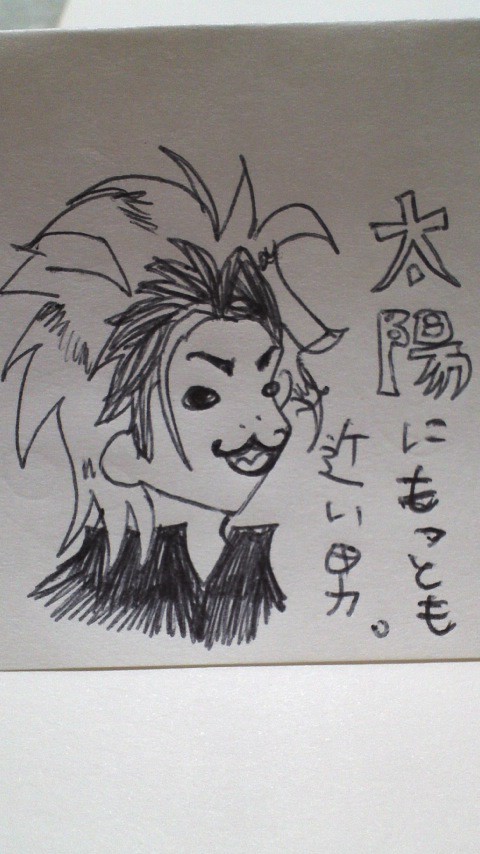 太陽にもっとも
近い男。